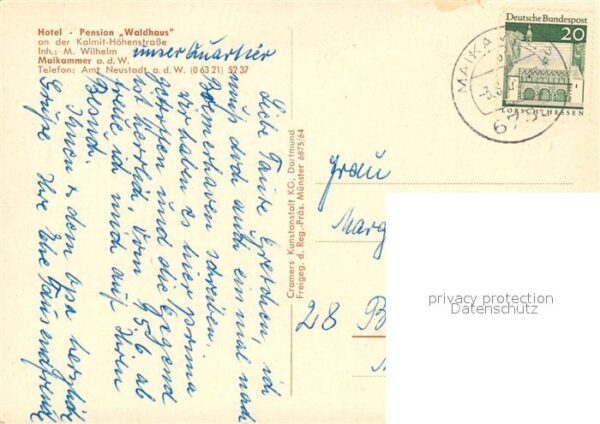 Hotel - Pension „Waldhaus"
an der Kalmit-Höhenstraße
Inh.: M. Wilhelm unser Quartier
Maikammer a. d. W.
Telefon: Amt Neustadt a. d. W. (0 63 21) 52 37
Liebe Tante Gretchen, ich
muß doch auch einmal nach
Bremerhaven schreiben.
wir haben es hier prima
getroffen und die Gegend
ist herrlich. Vom 9.5.6 ab
freue ich mich auf Ihren
Besuch.
Ihnen u. dem Opa herzliche
Grüße Ihre
Cramers Kunstanstalt KG, Dortmund
Freigeg. d. Reg.-Präs. Münster 6875/64
Frau
Marg
28 B
Deutsche Bundespost
20
LORSCH-HESSEN
MAIKA
673
privacy protection
Datenschutz